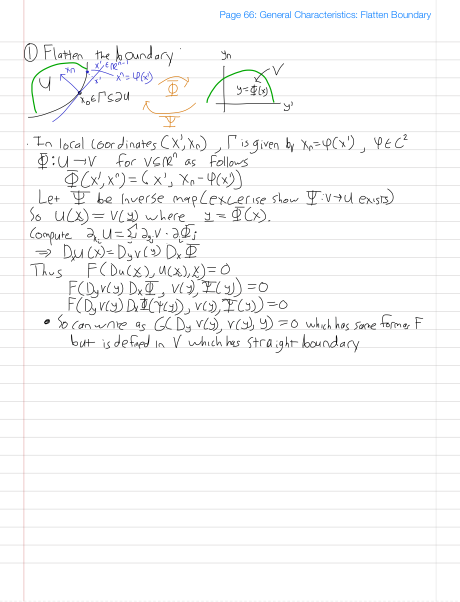 Page 66: General Characteristics: Flatten Boundary
① Flatten the boundary.
U
xn
x' ∈ ℝⁿ⁻¹
x'
xⁿ = φ(x')
x₀ ∈ Γ ⊆ ∂U
Φ
Ψ
yn
V
y = Φ(x)
y'
· In local coordinates (x', xn), Γ is given by xn = φ(x'), φ ∈ C²
Φ: U → V for V ⊆ ℝⁿ as follows
Φ(x', xⁿ) = (x', xn - φ(x'))
Let Ψ be inverse map (excerise show Ψ: V → U exists)
So U(x) = V(y) where y = Φ(x).
Compute ∂xᵢ U = Σ ∂yⱼ V · ∂ᵢΦⱼ
⇒ DxU(x) = Dyv(y) DxΦ
Thus F(Du(x), u(x), x) = 0
F(Dyv(y) DxΦ, v(y), Ψ(y)) = 0
F(Dyv(y) DxΦ(Ψ(y)), v(y), Ψ(y)) = 0
• So can write as G(Dy v(y), v(y), y) = 0 which has same form as F
but is defined in V which has straight boundary